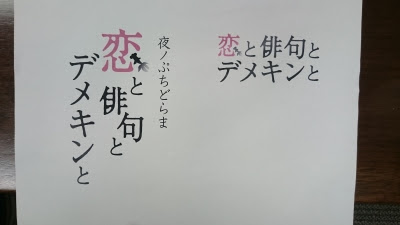 夜ノぷちどらま
恋と俳句と
デメキンと
恋と俳句と
デメキンと